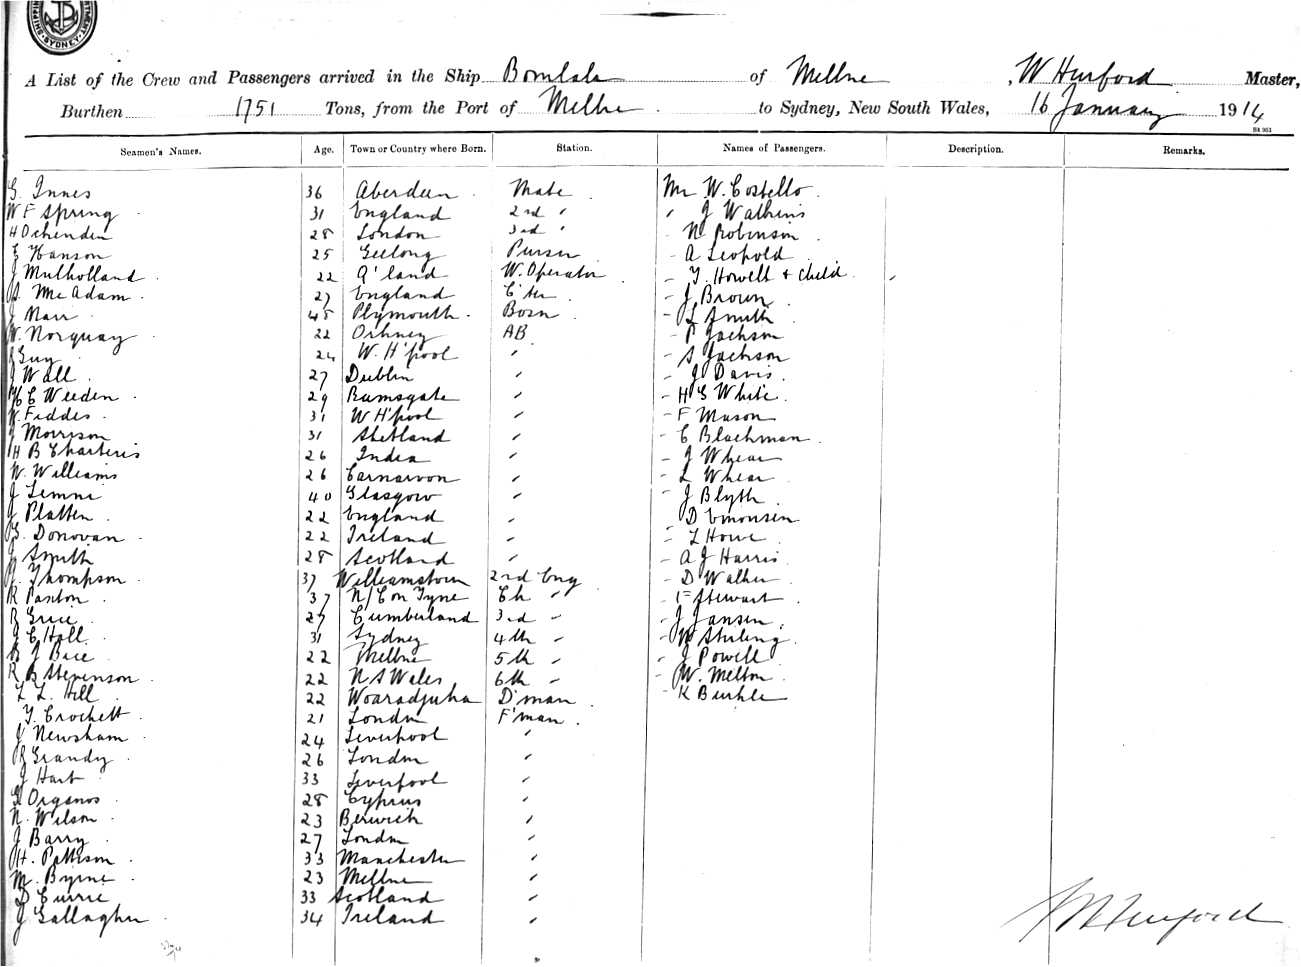 SHIPPING DEPARTMENT SYDNEY
A List of the Crew and Passengers arrived in the Ship Bombala of Mellne, W Hurford Master,
Burthen 1751 Tons, from the Port of Mellne to Sydney, New South Wales, 16 January 1914
Seamen's Names. Age. Town or Country where Born. Station. Names of Passengers. Description. Remarks.
G. Innes 36 Aberdeen Mate Mr W. Costello
W F Spring 31 England 2nd " " J Watkins
H Ochenden 28 London 3rd " - N Robinson
E Hanson 25 Geelong Purser - A Leopold
J Mulholland 22 Q'land W. Operator - T. Howell & Child
S. McAdam 27 England C'ter - J Brown
J Narr 45 Plymouth Bosn - L Smith
W. Norquay 22 Orkney AB - P Jackson
J Guy 24 W. H'pool " - S Jackson
J Wall 27 Dublin " - J Davis
H C Weeden 29 Ramsgate " - H G White
W. Fiddes 31 W H'pool " - F Mason
J Morrison 31 Shetland " - C Blackman
H B Charteris 26 India " - J Whear
W. Williams 26 Carnarvon " - L Whear
J 40 Glasgow " - J Blyth
J Platten 22 England " D
G. Donovan 22 Ireland " - L Howe
J Smith 28 Scotland " - A J Harris
J. Thompson 37 Williamstown 2nd Eng - D Walker
R Paxton 37 N/C on Tyne Ch " - F Stewart
R Grice 27 Cumberland 3rd " - J Jansen
J C Hall 31 Sydney 4th " - W Stirling
B J Bice 22 Mellne 5th " - J Powell
R B Stevenson 22 N S Wales 6th " - W. Melton
L L. Hill 22 D'man - K
T. Crockett 21 London F'man
J Newsham 24 Liverpool "
R Grandy 26 London "
J Hart 33 Liverpool "
G Organos 28 Cyprus "
N. Wilson 23 Berwick "
J Barry 27 London "
H. Pattison 33 Manchester "
M. Byrne 23 Mellne "
D Currie 33 Scotland "
J Gallagher 34 Ireland "
W Hurford